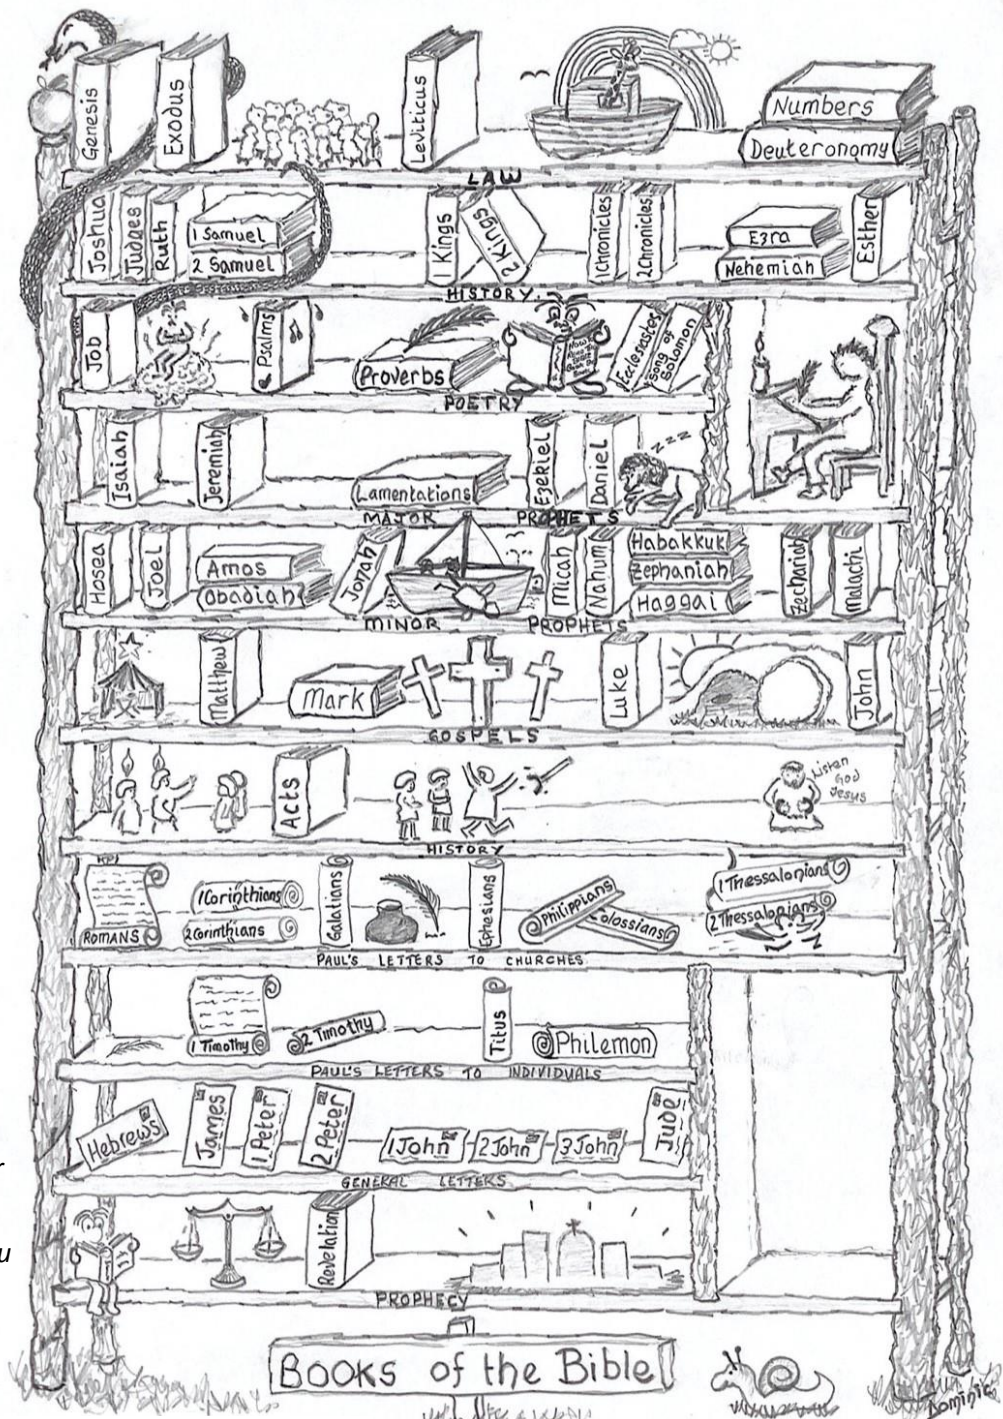 Genesis
Exodus
Leviticus
Numbers
Deuteronomy
LAW
Joshua
Judges
Ruth
1 Samuel
2 Samuel
1 Kings
2 Kings
1 Chronicles
2 Chronicles
Ezra
Nehemiah
Esther
HISTORY.
Job
Psalms
Proverbs
Ecclesiastes
Song of Solomon
POETRY
Isaiah
Jeremiah
Lamentations
Ezekiel
Daniel
zzz
MAJOR PROPHETS
Hosea
Joel
Amos
Obadiah
Jonah
Micah
Nahum
Habakkuk
Zephaniah
Haggai
Zechariah
Malachi
MINOR PROPHETS
Matthew
Mark
Luke
John
GOSPELS
Acts
Listen
God
Jesus
HISTORY
ROMANS
1Corinthians
2Corinthians
Galatians
Ephesians
Philippians
Colossians
1 Thessalonians
2 Thessalonians
PAUL'S LETTERS TO CHURCHES
1 Timothy
2 Timothy
Titus
Philemon
PAUL'S LETTERS TO INDIVIDUALS
Hebrews
James
1 Peter
2 Peter
1 John
2 John
3 John
Jude
GENERAL LETTERS
Revelation
PROPHECY
BOOKS of the BIBLE
Dominic